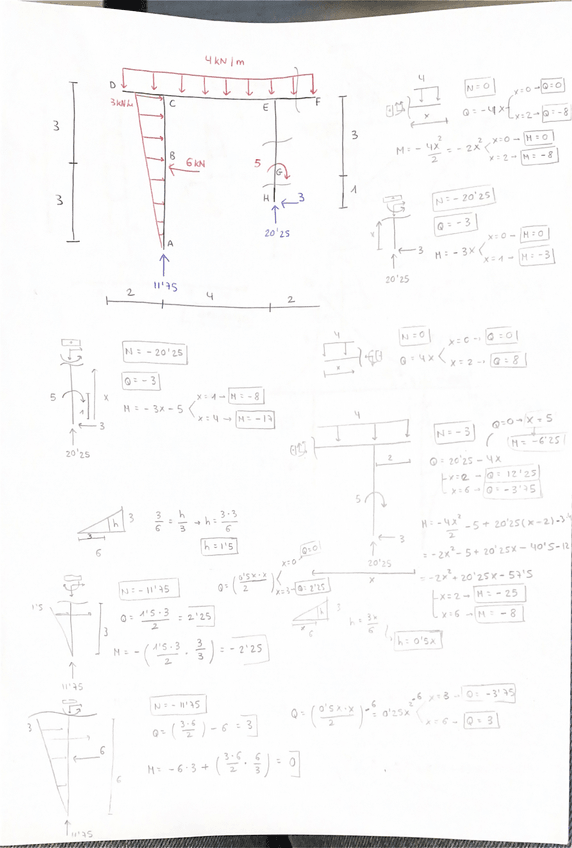 4 kN/m
D
3 kN/m
C
E
F
3
B
6 kN
5
G
3
3
H
3
1
20'25
A
11'75
2
4
2
4
x
N=0
Q=-4x
x=0→ Q=0
x=2→ Q=-8
M= -4x²/2 = -2x²
x=0→ M=0
x=2→ M=-8
N=-20'25
Q=-3
x
3
M= -3x
x=0→ M=0
x=1→ M=-3
20'25
N=-20'25
Q=-3
5
1
x
M= -3x-5
x=1→ M=-8
x=4→ M=-17
3
20'25
4
x
N=0
Q=4x
x=0→ Q=0
x=2→ Q=8
4
2
5
3
20'25
x
N=-3
Q=0→ x=5
M=-6'25
Q=20'25-4x
x=2→ Q=12'25
x=6→ Q=-3'75
M= -4x²/2 -5+20'25(x-2)-3·4
= -2x²-5+20'25x-40'5-12
= -2x²+20'25x-57'5
x=2→ M=-25
x=6→ M=-8
h
3
3
6
3/6 = h/3 → h= 3·3/6
h=1'5
1'5
3
11'75
N=-11'75
Q= 1'5·3/2 = 2'25
M= -(1'5·3/2 · 3/3) = -2'25
Q= (0'5x·x/2)
x=0 Q=0
x=3→ Q=2'25
h
3
6
h= 3x/6
h=0'5x
3
6
6
11'75
N=-11'75
Q= (3·6/2) -6 = 3
M= -6·3+ (3·6/2 · 6/3) = 0
Q= (0'5x·x/2) -6 = 0'25x² -6
x=3→ Q=-3'75
x=6→ Q=3